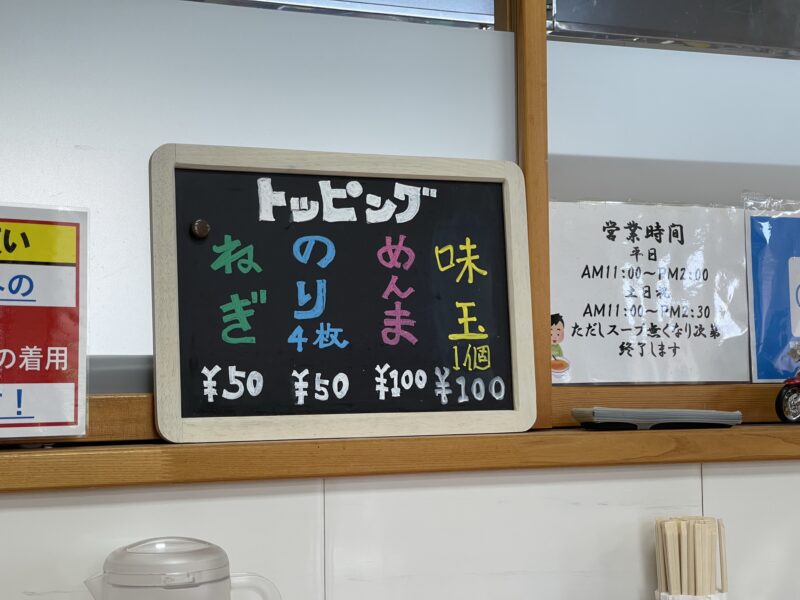 トッピング
ねぎ
¥50
のり
4枚
¥50
めんま
¥100
味玉
1個
¥100
営業時間
平日
AM11:00~PM2:00
土日祝
AM11:00~PM2:30
ただしスープ無くなり次第
終了します
い
の
の着用
!